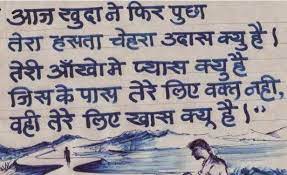 आज खुदा ने फिर पुछा
तेरा हसता चेहरा उदास क्यु है।
तेरी आँखोमे प्यास क्यु है
जिस के पास तेरे लिए वक्त नही,
वही तेरे लिए खास क्यु है।"